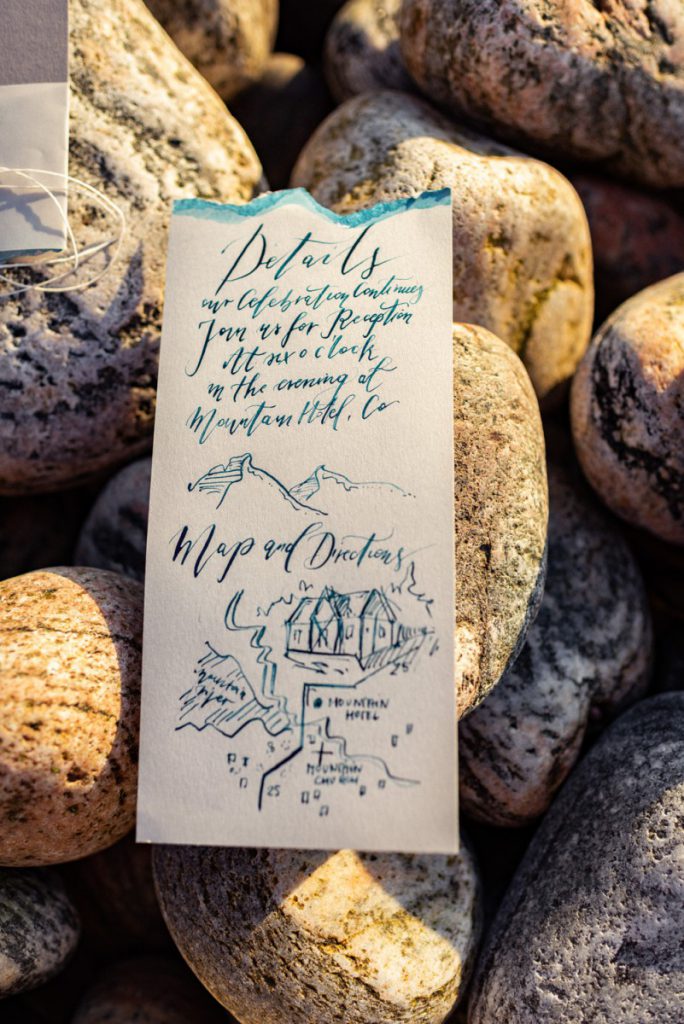 Details
our Celebration Continues
Join us for Reception
At six o clock
in the evening at
Mountain Hotel, Co
Map and Directions
mountain
river
26
MOUNTAIN
HOTEL
MOUNTAIN
CHURCH
25